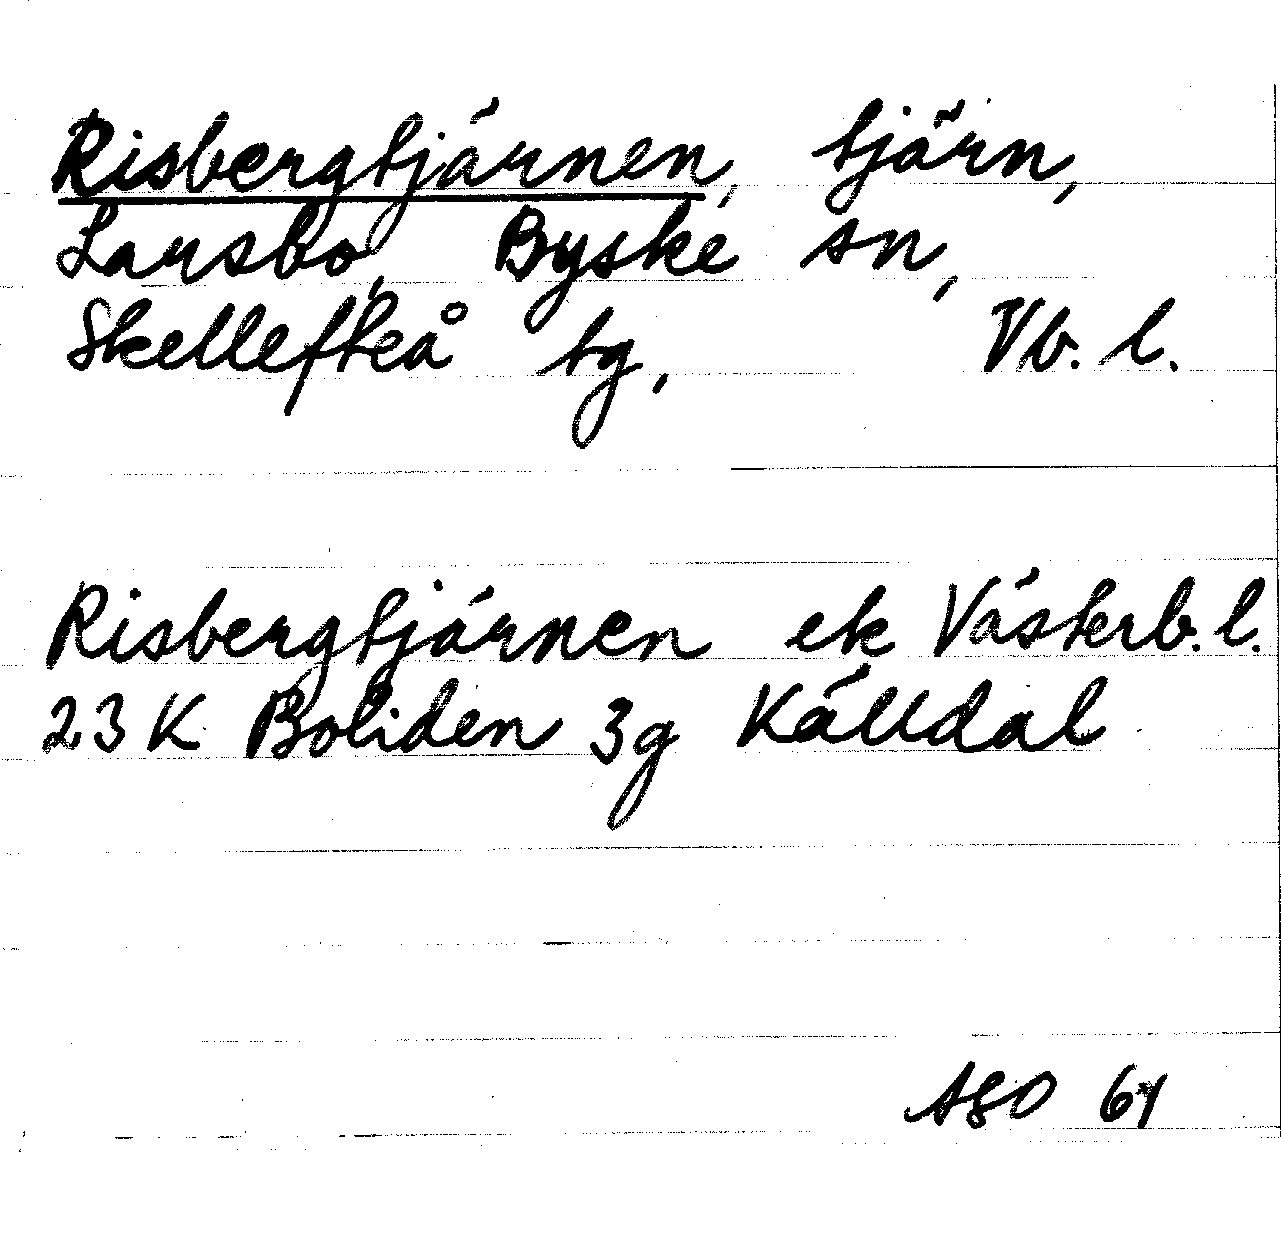 Risbergtjärnen, tjärn,
Larsbo, Byske sn,
Skellefteå tg, Vb. l.
Risbergtjärnen ek Västerb. l.
23 K Boliden 3g Källdal
ASO 61